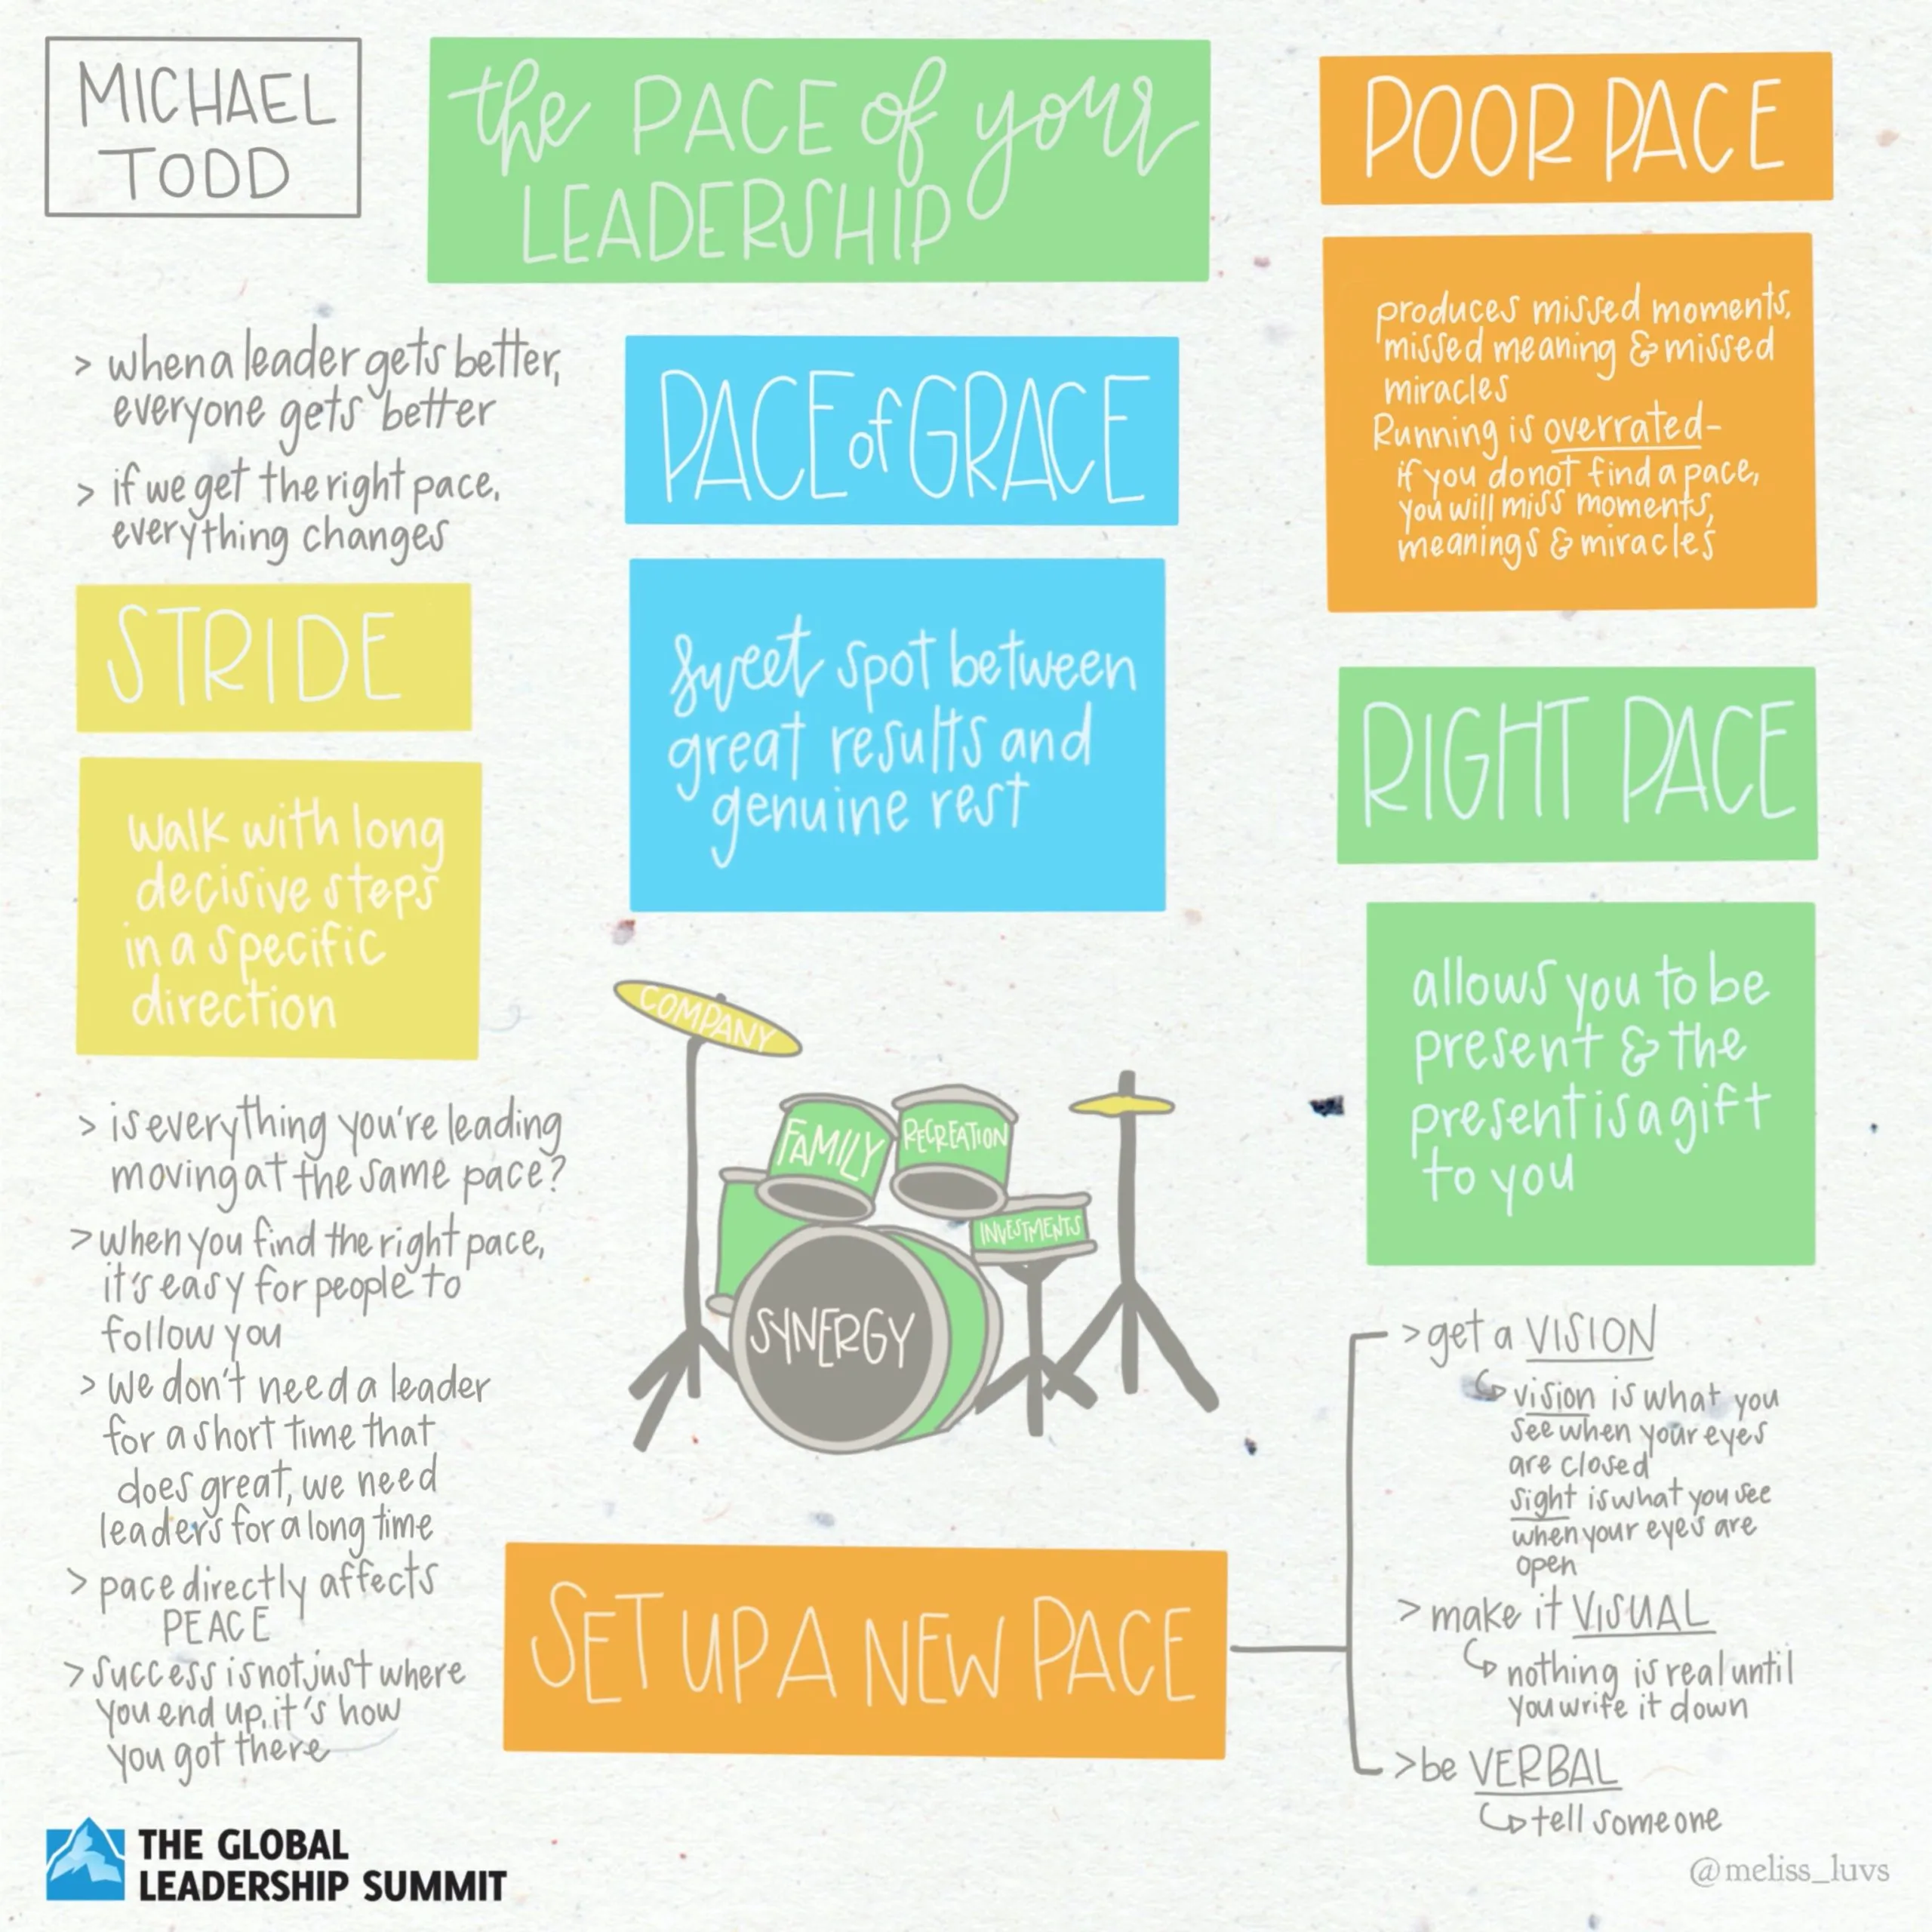 MICHAEL
TODD
the PACE of your
LEADERSHIP
> when a leader gets better,
everyone gets better
> if we get the right pace,
everything changes
STRIDE
walk with long
decisive steps
in a specific
direction
> is everything you're leading
moving at the same pace?
> when you find the right pace,
it's easy for people to
follow you
> we don't need a leader
for a short time that
does great, we need
leaders for a long time
> pace directly affects
PEACE
> success is not just where
you end up, it's how
you got there
PACE of GRACE
sweet spot between
great results and
genuine rest
COMPANY
FAMILY
RECREATION
INVESTMENTS
SYNERGY
POOR PACE
produces missed moments,
missed meaning & missed
miracles
Running is overrated-
if you do not find a pace,
you will miss moments,
meanings & miracles
RIGHT PACE
allows you to be
present & the
present is a gift
to you
SET UP A NEW PACE
> get a VISION
vision is what you
see when your eyes
are closed
sight is what you see
when your eyes are
open
> make it VISUAL
nothing is real until
you write it down
> be VERBAL
tell someone
THE GLOBAL
LEADERSHIP SUMMIT
@meliss_luvs